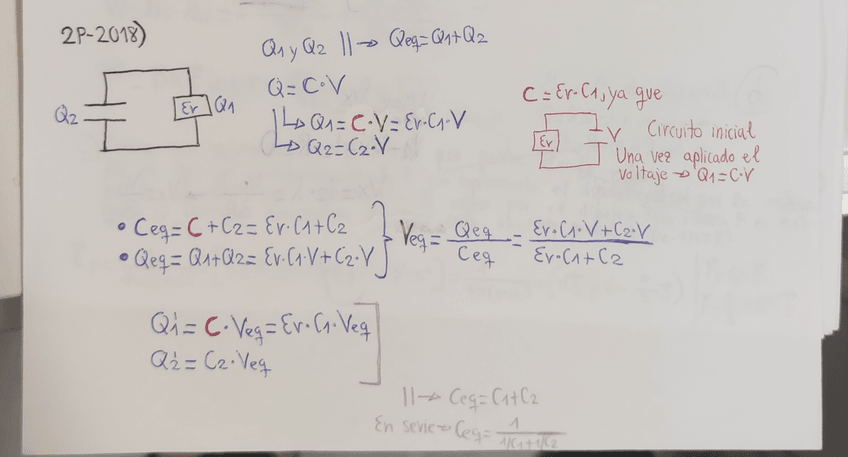 2P-2018)
Q1 y Q2 || → Qeq=Q1+Q2
Q=C·V
↳ Q1=C·V=Er·C1·V
↳ Q2=C2·V
Q2
Er
Q1
C=Er·C1, ya que
Er
V
Circuito inicial
Una vez aplicado el
voltaje → Q1=C·V
• Ceq=C+C2=Er·C1+C2
• Qeq=Q1+Q2=Er·C1·V+C2·V
Veq= Qeq/Ceq = Er·C1·V+C2·V/Er·C1+C2
Q1'=C·Veq=Er·C1·Veq
Q2'=C2·Veq
|| → Ceq=C1+C2
En serie → Ceq= 1/1/C1+1/C2